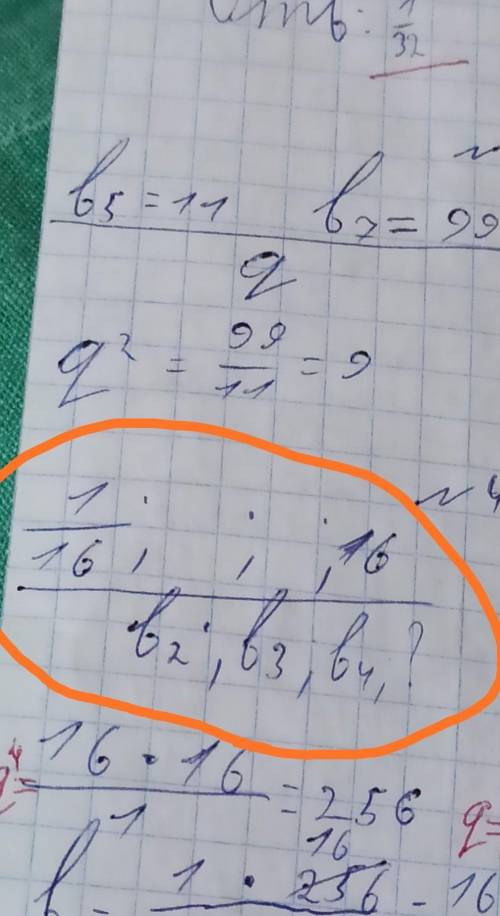 Отв: 1/32
b₅ = 11 b₇ = 99
q
q² = 99/11 = 9
№ 4
1/16; ; ; 16
b₂, b₃, b₄, ?
q⁴ = 16 · 16/1 = 256 q =
16
1 · 256 - 16